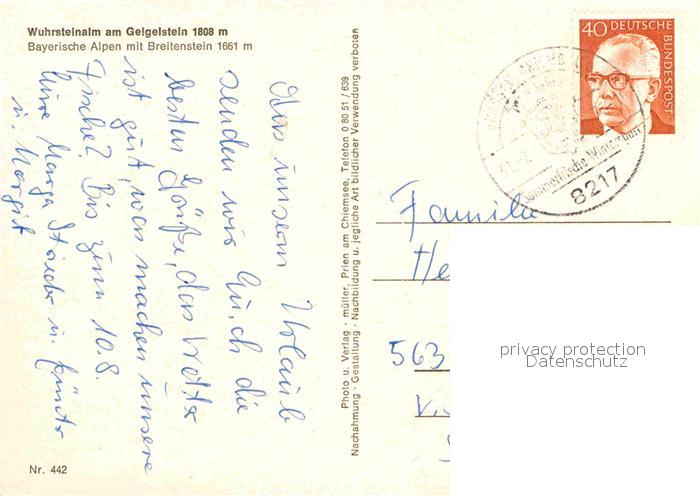 Wuhrsteinalm am Geigelstein 1808 m
Bayerische Alpen mit Breitenstein 1661 m
Aus unserem Urlaub
senden wir Euch die
besten Grüße, das Wetter
ist gut, was machen unsere
Fische? Bis zum 10.8.
Eure Marga
u. Margit
Photo u. Verlag · müller, Prien am Chiemsee, Telefon 0 80 51 / 639
Nachahmung · Gestaltung · Nachbildung u. jegliche Art bildlicher Verwendung verboten
Nr. 442
40 DEUTSCHE
BUNDESPOST
8217
Familie
He
563
privacy protection
Datenschutz